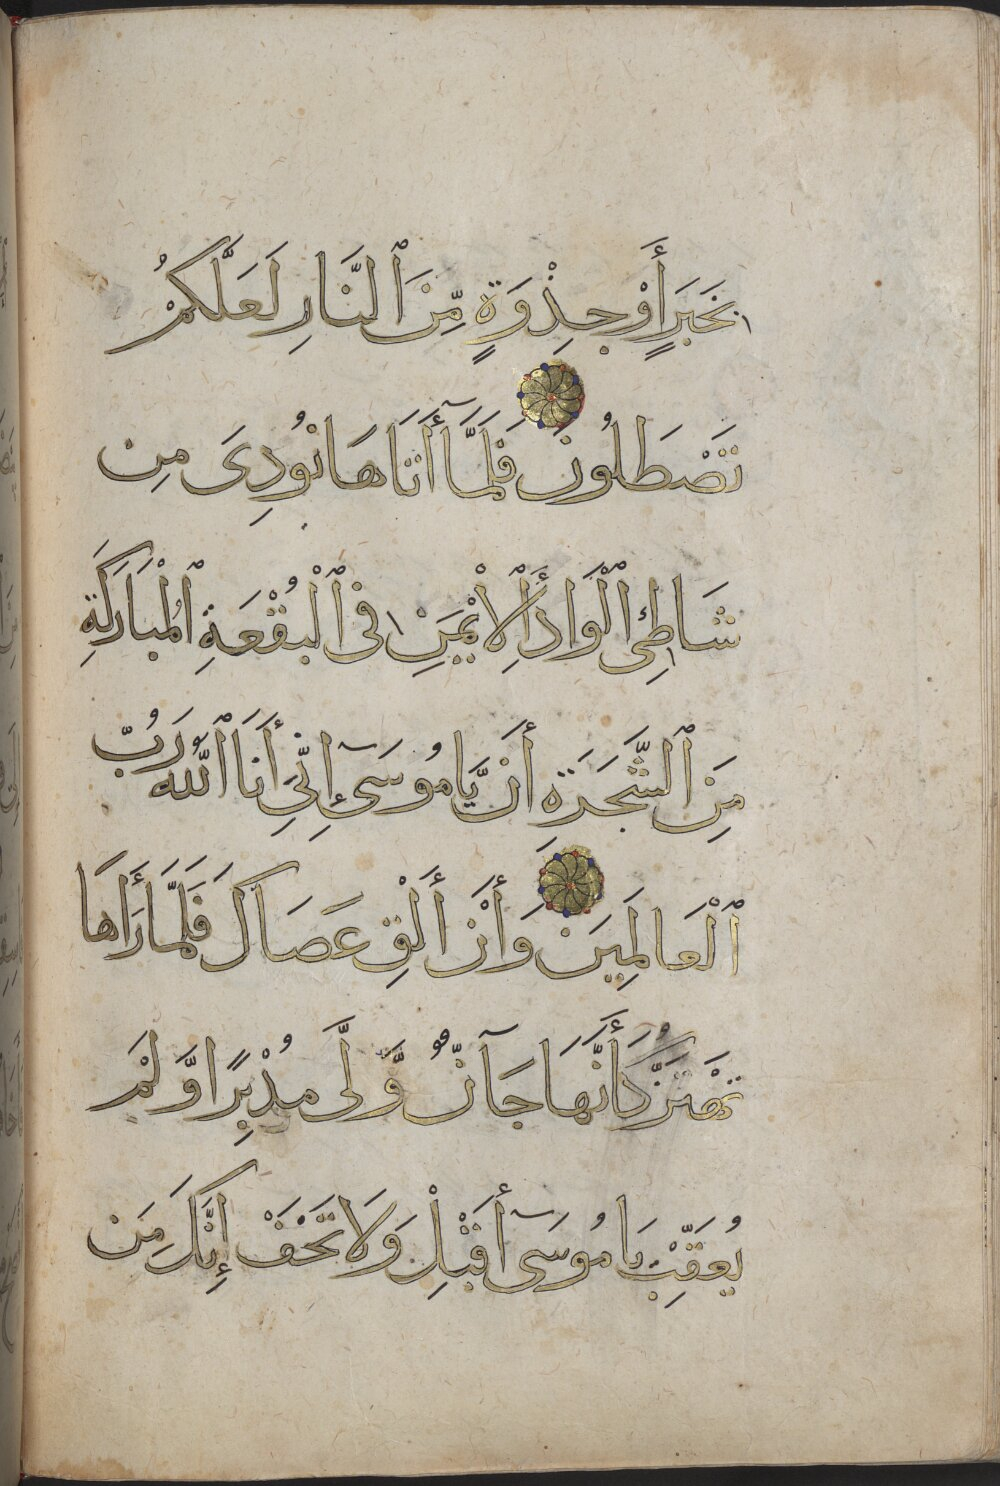 بِخَبَرٍ أَوْ جِذْوَةٍ مِّنَ ٱلنَّارِ لَعَلَّكُمْ
تَصْطَلُونَ فَلَمَّآ أَتَاهَا نُودِىَ مِن
شَاطِئِ ٱلْوَادِ ٱلْأَيْمَنِ فِى ٱلْبُقْعَةِ ٱلْمُبَارَكَةِ
مِنَ ٱلشَّجَرَةِ أَن يَّا مُوسَىٓ إِنِّى أَنَا ٱللَّهُ رَبُّ
ٱلْعَالَمِينَ وَأَنْ أَلْقِ عَصَاكَ فَلَمَّا رَأَاهَا
تَهْتَزُّ كَأَنَّهَا جَآنٌّ وَّلَّى مُدْبِرًا وَّلَمْ
يُعَقِّبْ يَا مُوسَىٓ أَقْبِلْ وَلَا تَخَفْ إِنَّكَ مِنَ